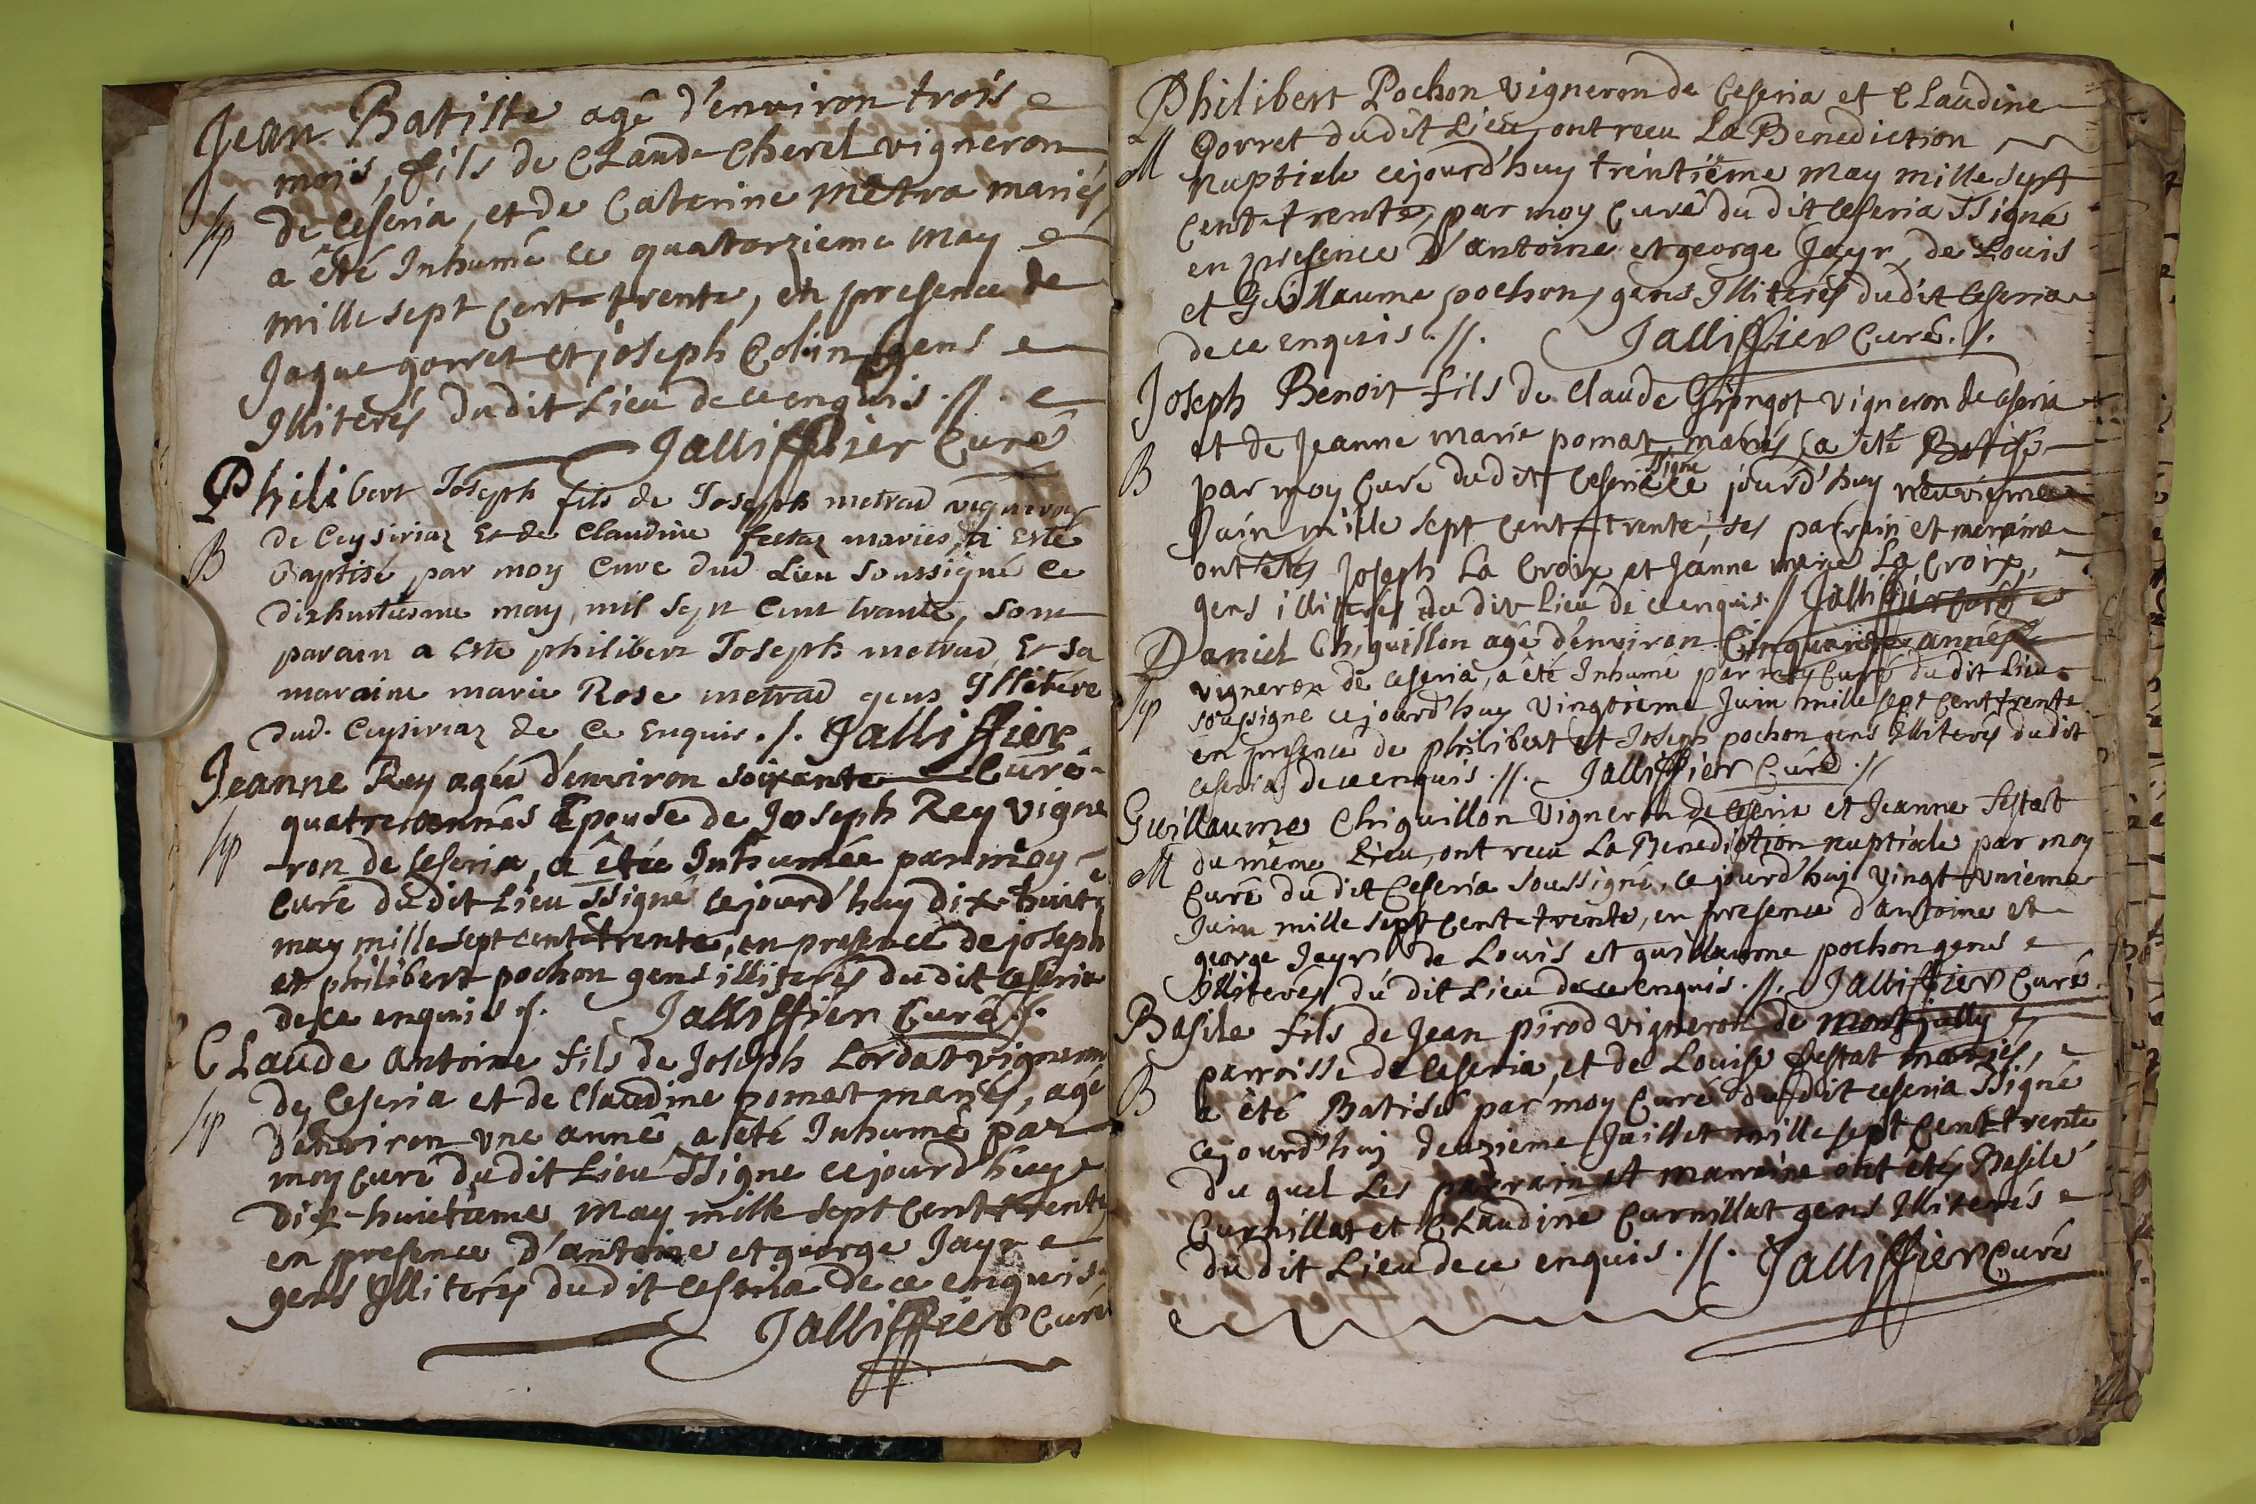 Jean Batiste agê d'environ trois
mois, fils de Claude Cherel vigneron
Sp
de Ceseria, et de Caterine Metra mariés,
a êté Inhumé ce quatorzieme May
mille sept cent-trente, en presence de
Jaque gorret et joseph Colin gens
Illiterés du dit Lieu de ce enquis .//.
Jalliffier Curé
Philibert Joseph fils de Joseph metrad vigneron
B
de Ceysiriaz Et de Claudine festaz mariés, a Esté
Baptisé par moy Curé dud Lieu Soussigné Ce
dixhuitiesme may, mil sept Cent trante, Son
parain a Esté philibert Joseph metrad, Et sa
maraine marie Rose metrad gens Illétéré
dud. Ceysiriaz de Ce Enquis ./. Jalliffier
Curé
Jeanne Rey agée d'environ soixante
quatre annés Epouse de Joseph Rey Vigne
Sp
-ron de Ceseria, a êtée Inhumée par moy
Curé du dit Lieu SSigné cejourd'huy dix-huit
may mille sept cent-trente, en presence de joseph
et philibert pochon gens illiterés du dit Ceseria
de ce enquis ./. Jalliffier Curé ./.
Claude antoine fils de Joseph Lordat vigneron
de Ceseria et de Claudine pomat mariés, agé
Sp
d'environ une anné, a été Inhumé par
moy curé du dit Lieu SSigne cejourd'huy
dix-huictieme May mille sept cent trente
en presence d'antoine et george Jayr
gens Illiterés du dit Ceseria de ce enquis
Jalliffier Curé
Philibert Pochon vigneron de Ceseria et Claudine
Gorret du dit Lieu, ont recu La Benediction
M
Nuptiale cejourd'huy trentiême May mille sept
cent-trente, par moy Curé du dit Ceseria SSigné
en presence d'antoine et george Jayr, de Louis
et Guillaume pochon, gens Illiterés du dit Ceseria
de ce enquis .//. Jalliffier Curé ./.
Joseph Benoit fils de Claude Gringot vigneron de Ceseria
et de Jeanne marie pomat mariés, a été Batisé
B
SSigne
par moy Curé du dit Ceseria ce jourd'huy neuvieme
Juin mille sept cent-trente, ses parrain et meraine
ont êtés Joseph La Croix et Jeanne marie La Croix,
gens illiterés du dit Lieu de ce enquis .// Jalliffier Curé
Daniel Chiguillon agé d'environ Cinquante annés
vigneron de Ceseria, a êté Inhumé par moy Curé du dit Lieu
Sp
soussigne cejourd'huy vingtieme Juin mille sept cent trente
en presence de philibert et Joseph pochon gens Illiterés du dit
Ceseria de ce enquis .//. Jalliffier Curé .//
Guillaume Chiguillon Vigneron de Ceseria et Jeanne festat
du même Lieu, ont recu La Benediction nuptiale par moy
M
Curé du dit Ceseria soussigné, cejourd'huy vingt-unieme
Juin mille sept cent-trente, en presence d'antoine et
george Jayr de Louis et guillaume pochon gens
Illiterés du dit Lieu de ce enquis .//. Jalliffier Curé
Basile fils de Jean pirod vigneron de Montjully
parroisse de Ceseria, et de Louise festat mariés,
B
a êté Batisé par moy Curé du dit Ceseria SSigné
cejourd'huy deuzieme Juillet mille sept cent trente
du quel Les parrain et marraine ont étés Basile
Curnillat et Claudine Curnillat gens Illiterés
du dit Lieu de ce enquis .//. Jalliffier Curé